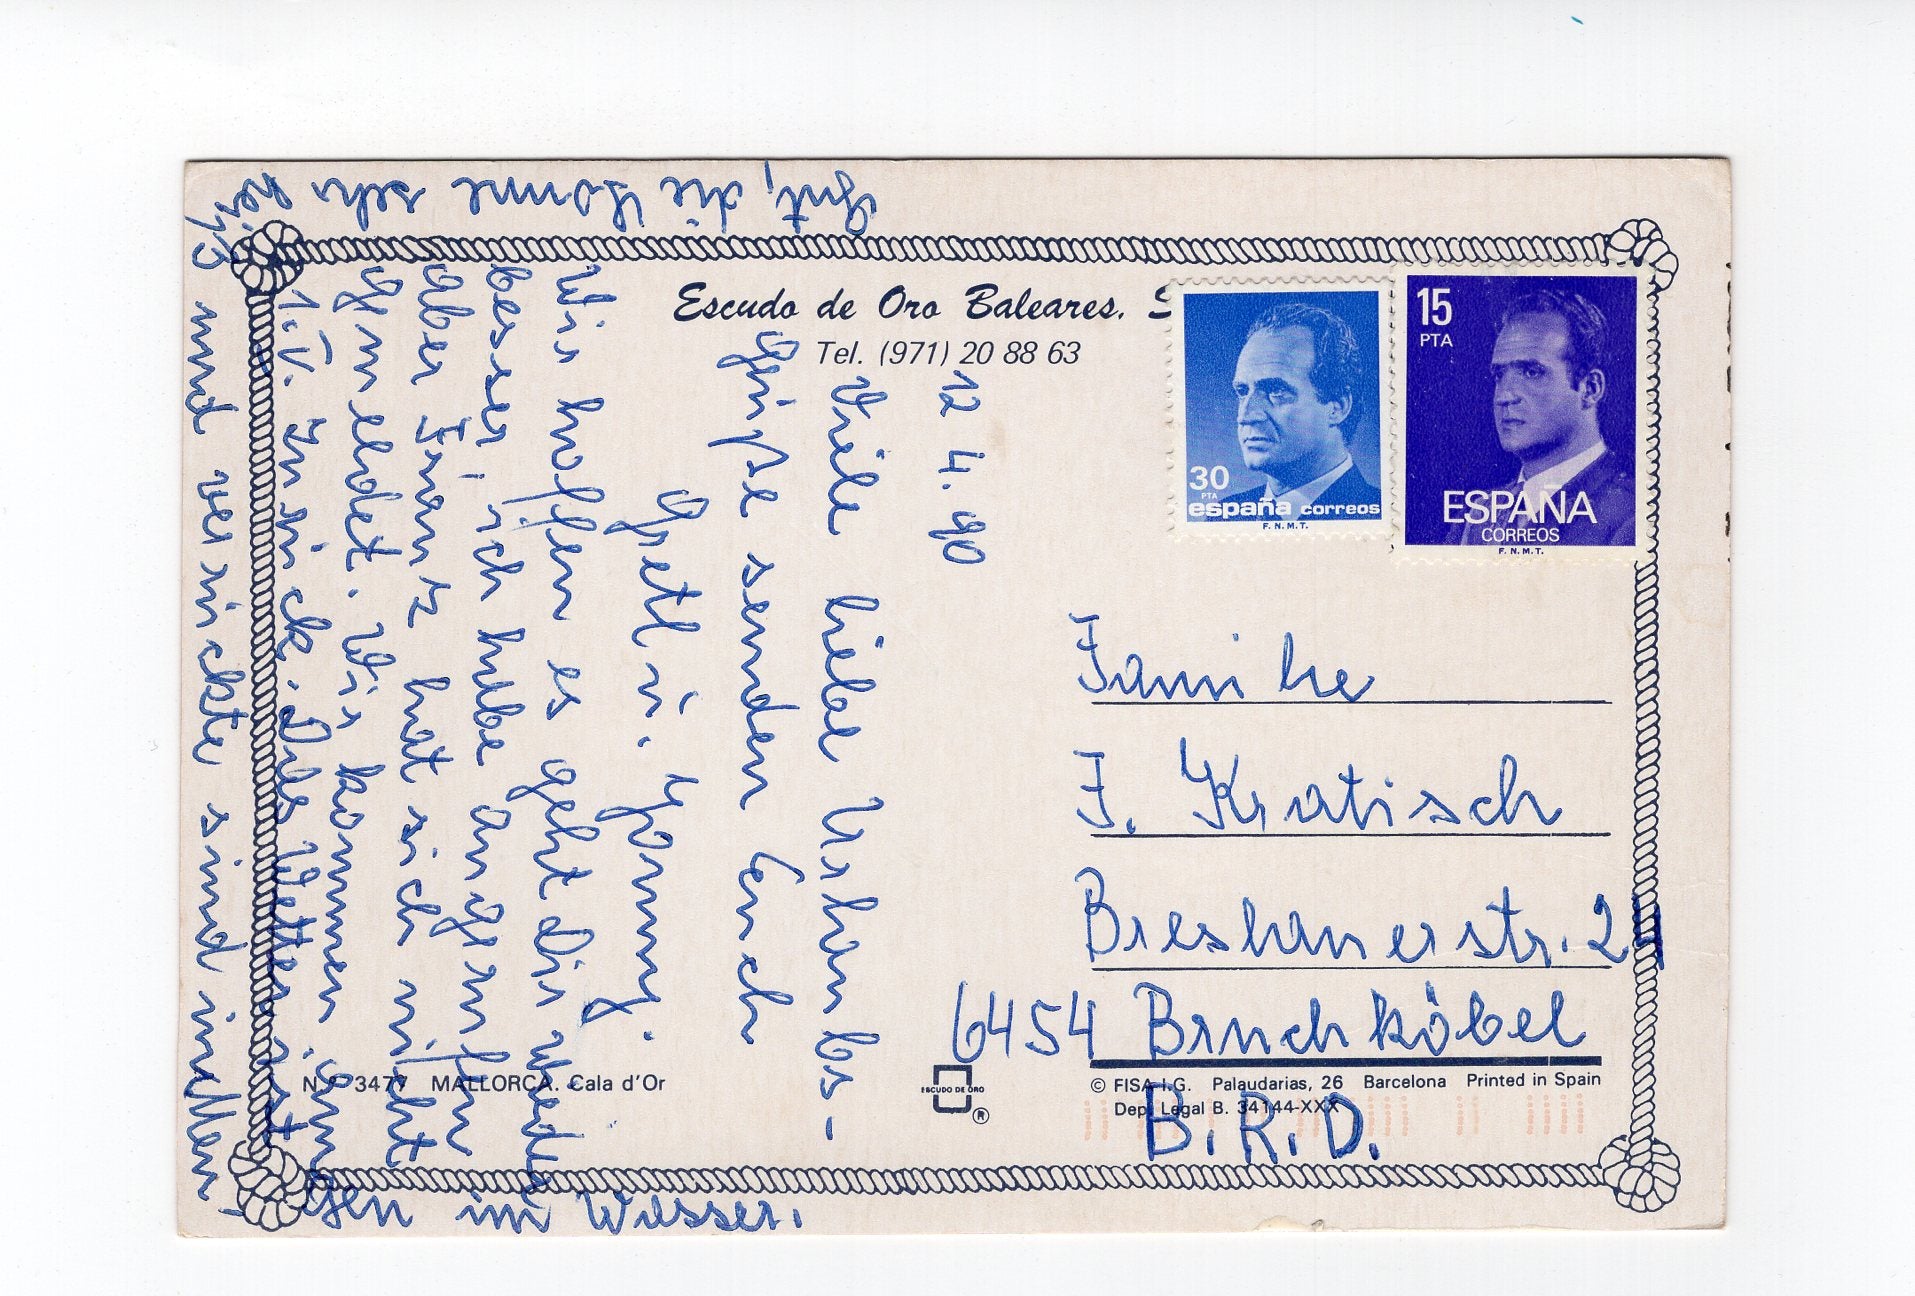 Escudo de Oro Baleares. S
Tel. (971) 20 88 63
15
PTA
ESPAÑA
CORREOS
F.N.M.T.
30
PTA
españa correos
F.N.M.T.
12 4. 90
Viele liebe Urlaubs-
grüße senden Euch
Gretl u.
Wir hoffen es geht dir wieder
besser, ich habe angerufen
aber Frantz hat sich nicht
gemeldet. Wir kommen am
1.V. Zurück. Das Wetter ist
gut, die Sonne sehr
heiß und verrückte sind
gen im Wasser.
Familie
F. Kratisch
Breslauerstr. 24
6454 Bruchköbel
B.R.D.
N.º 3477 MALLORCA. Cala d'Or
ESCUDO DE ORO
®
© FISA I.G. Palaudarias, 26 Barcelona Printed in Spain
Dep. Legal B. 34144-XXX